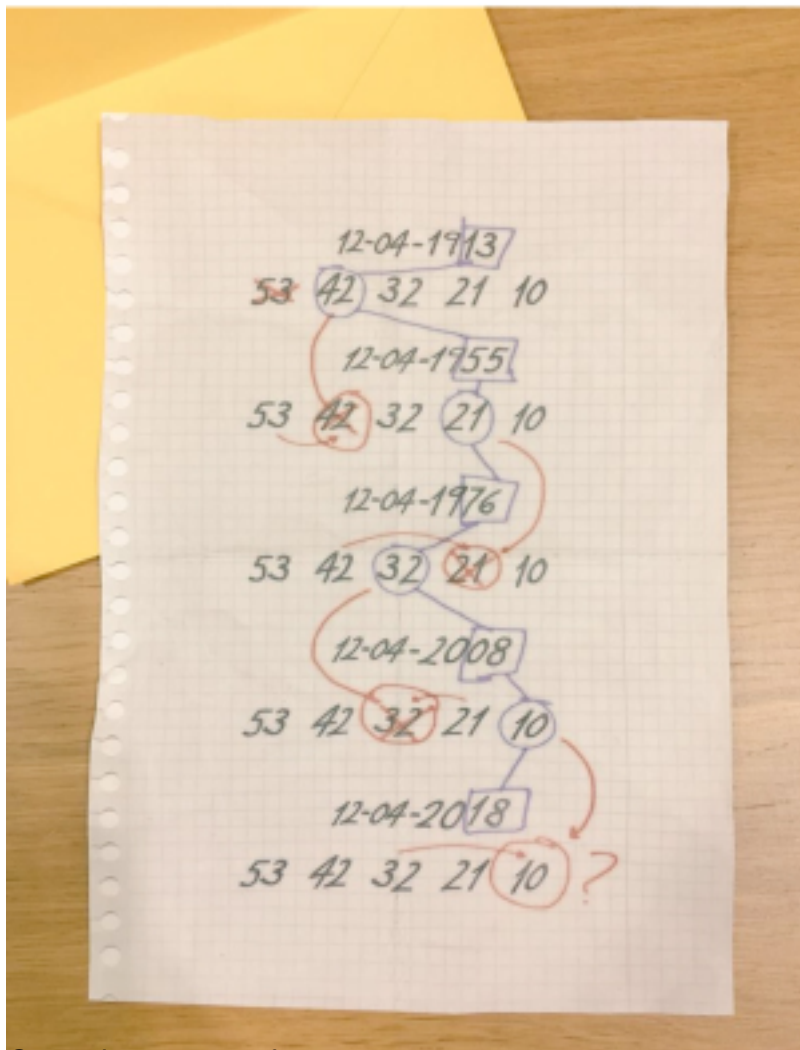 12-04-1913
53 42 32 21 10
12-04-1955
53 42 32 21 10
12-04-1976
53 42 32 21 10
12-04-2008
53 42 32 21 10
12-04-2018
53 42 32 21 10 ?